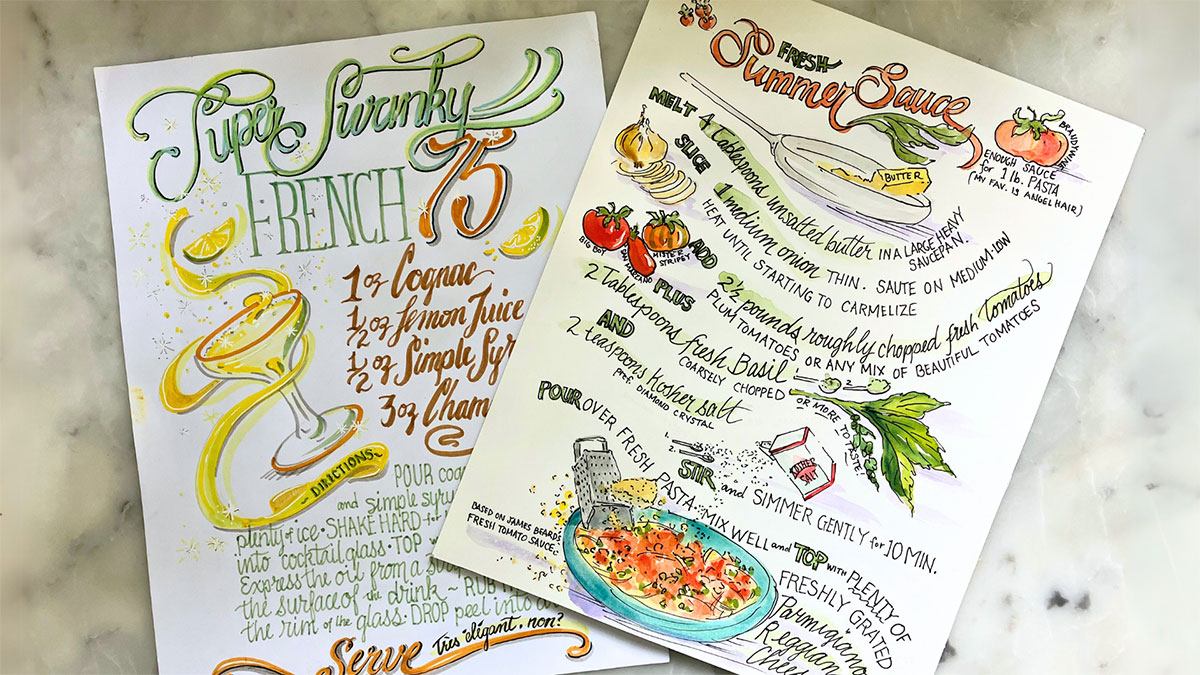 Super Swanky
FRENCH 75
1 oz Cognac
1/2 oz Lemon Juice
1/2 oz Simple Syr
3 oz Cham
DIRECTIONS~
POUR cog
and simple syru
plenty of ice · SHAKE HARD
into cocktail glass · TOP
Express the oil from a
the surface of the drink ~ RUB
the rim of the glass · DROP peel into
Serve
Très eligant, non?
FRESH
Summer Sauce
BRANDYWINE
ENOUGH SAUCE
for 1 lb. PASTA
(MY FAV. IS ANGEL HAIR)
BUTTER
MELT 4 Tablespoons unsalted butter IN A LARGE HEAVY
SAUCEPAN.
SLICE 1 medium onion THIN. SAUTE ON MEDIUM-LOW
HEAT UNTIL STARTING TO CARMELIZE
BIG BOY
SAN MARZANO
MISTER
STRIPEY
ADD 2 1/2 pounds roughly chopped fresh tomatoes
PLUM TOMATOES OR ANY MIX OF BEAUTIFUL TOMATOES
PLUS
2 Tablespoons fresh Basil
COARSELY CHOPPED OR MORE TO TASTE!
1.
2.
AND
2 teaspoons Kosher salt
pref. DIAMOND CRYSTAL
1.
KOSHER
SALT
STIR and SIMMER GENTLY for 10 MIN.
POUR OVER FRESH PASTA. MIX WELL and TOP WITH PLENTY OF
FRESHLY GRATED
Parmigiano
Reggian
Chees
BASED ON JAMES BEARD'S
FRESH TOMATO SAUCE